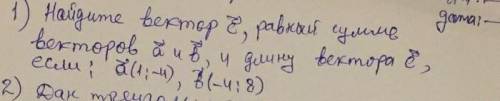 1) Найдите вектор c⃗, равный сумме
дата:-
векторов a⃗ и b⃗, и длину вектора c⃗,
если; a⃗(1;-4), b⃗(-4;8)
2) Дан